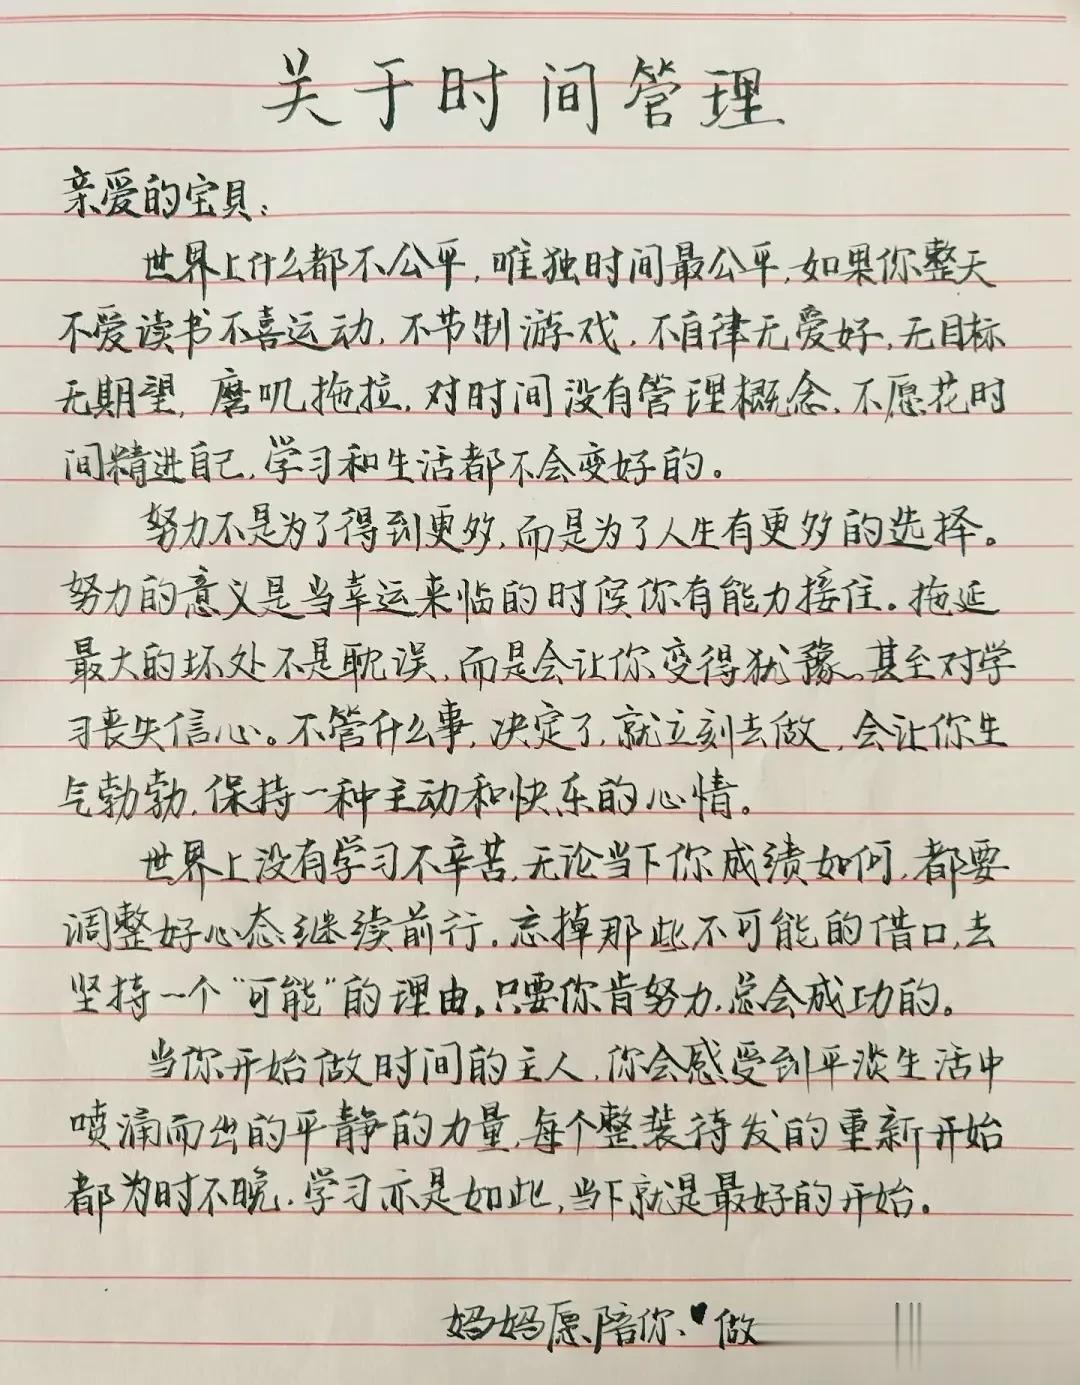 关于时间管理
亲爱的宝贝:
世界上什么都不公平,唯独时间最公平,如果你整天
不爱读书不喜运动,不节制游戏,不自律无爱好,无目标
无期望,磨叽拖拉,对时间没有管理概念,不愿花时
间精进自己,学习和生活都不会变好的。
努力不是为了得到更多,而是为了人生有更多的选择。
努力的意义是当幸运来临的时候你有能力接住。拖延
最大的坏处不是耽误,而是会让你变得犹豫。甚至对学
习丧失信心。不管什么事,决定了,就立刻去做,会让你生
气勃勃,保持一种主动和快乐的心情。
世界上没有学习不辛苦,无论当下你成绩如何,都要
调整好心态继续前行。忘掉那些不可能的借口,去
坚持一个“可能”的理由。只要你肯努力,总会成功的。
当你开始做时间的主人,你会感受到平淡生活中
喷涌而出的平静的力量,每个整装待发的重新开始
都为时不晚。学习亦是如此,当下就是最好的开始。
妈妈愿陪你、♥做